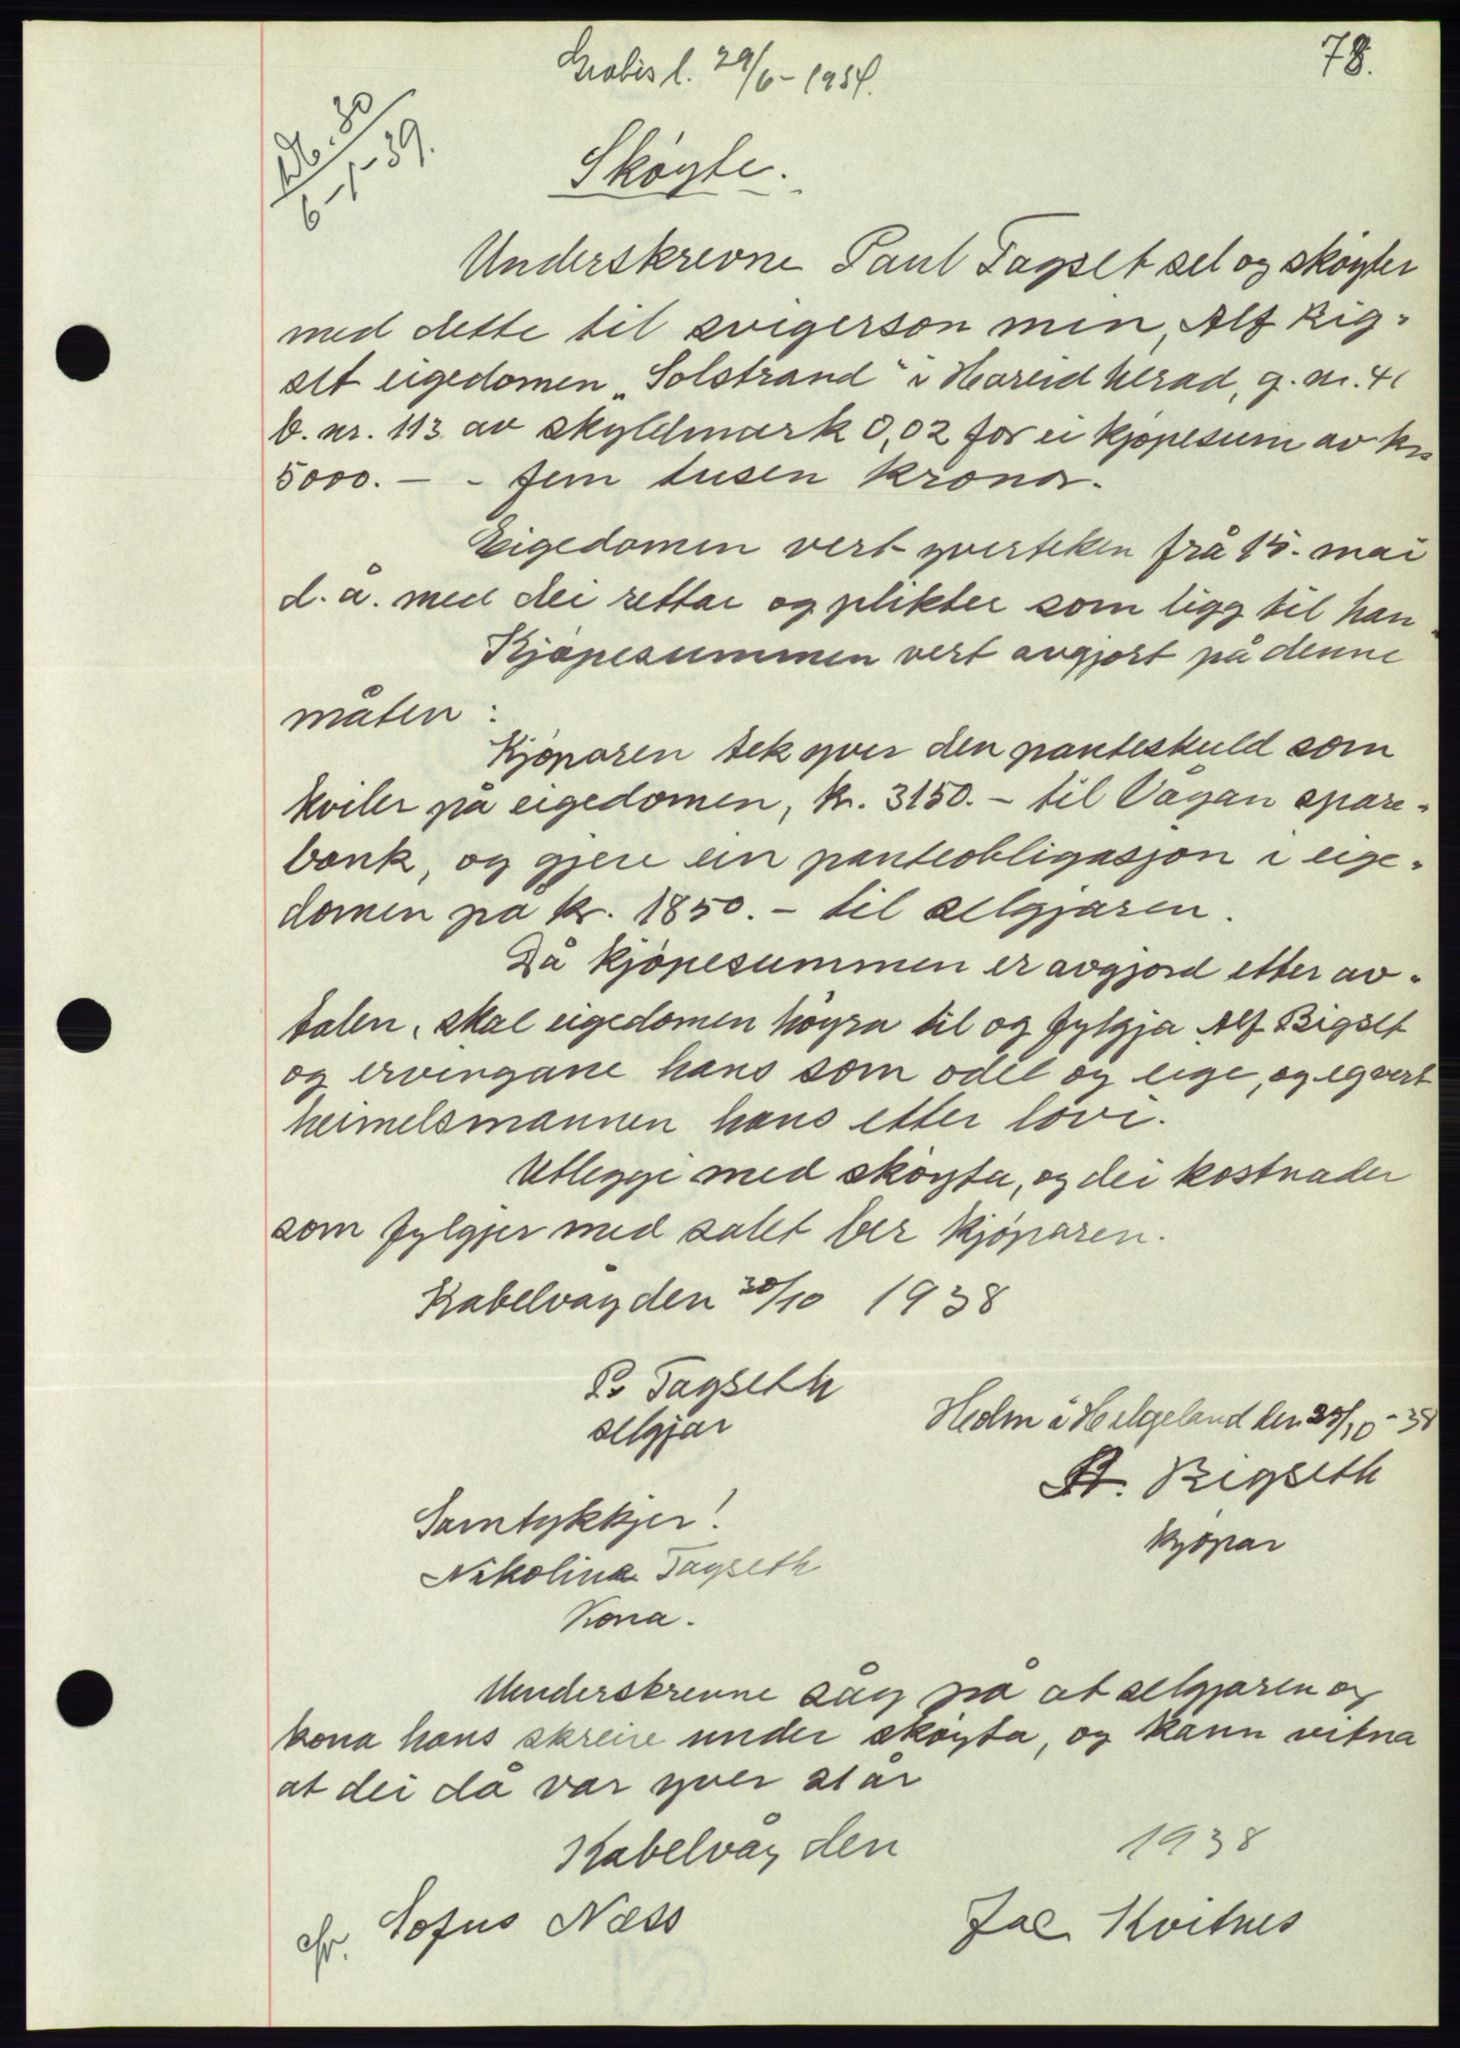 78.
29/6-1954.
Db. 30
6-1-39.
Skøyte.
Underskrevne Paul Tagset sel og skøyter
med dette til svigerson min, Alf Big-
set eigedomen „Solstrand" i Hareid herad, g. nr. 41
b. nr. 113 av skyldmark 0,02 for ei kjøpesum av kr.
5000. - - fem tusen kronor.
Eigedomen vert yverteken frå 15. mai
d. å. med dei rettar og plikter som ligg til han.
Kjøpesummen vert avgjort på denne
måten:
Kjøparen tek yver den panteskuld som
kviler på eigedomen, kr. 3150. - til Vågan spare-
bank, og gjere ein panteobligasjon i eige-
domen på kr. 1850. - til seljaren.
Då kjøpesummen er avgjord etter av-
talen, skal eigedomen høyra til og fylgja Alf Bigset
og ervingane hans som odel og eige, og eg vert
heimelsmannen hans etter lovi.
Utleggi med skøyta, og dei kostnader
som fylgjer med salet ber kjøparen.
Kabelvåg den 30/10 1938
P. Tagseth
selgjar
Holm i Helgeland den 25/10-38
A. Bigseth
kjøpar
Samtykkjer!
Nikolina Tagseth
Kona.
Underskrevne såg på at selgjaren og
kona hans skreiv under skøyta, og kann vitna
at dei då var yver 21 år
Kabelvåg den 1938
Sofus Næss
Jac Kvitnes